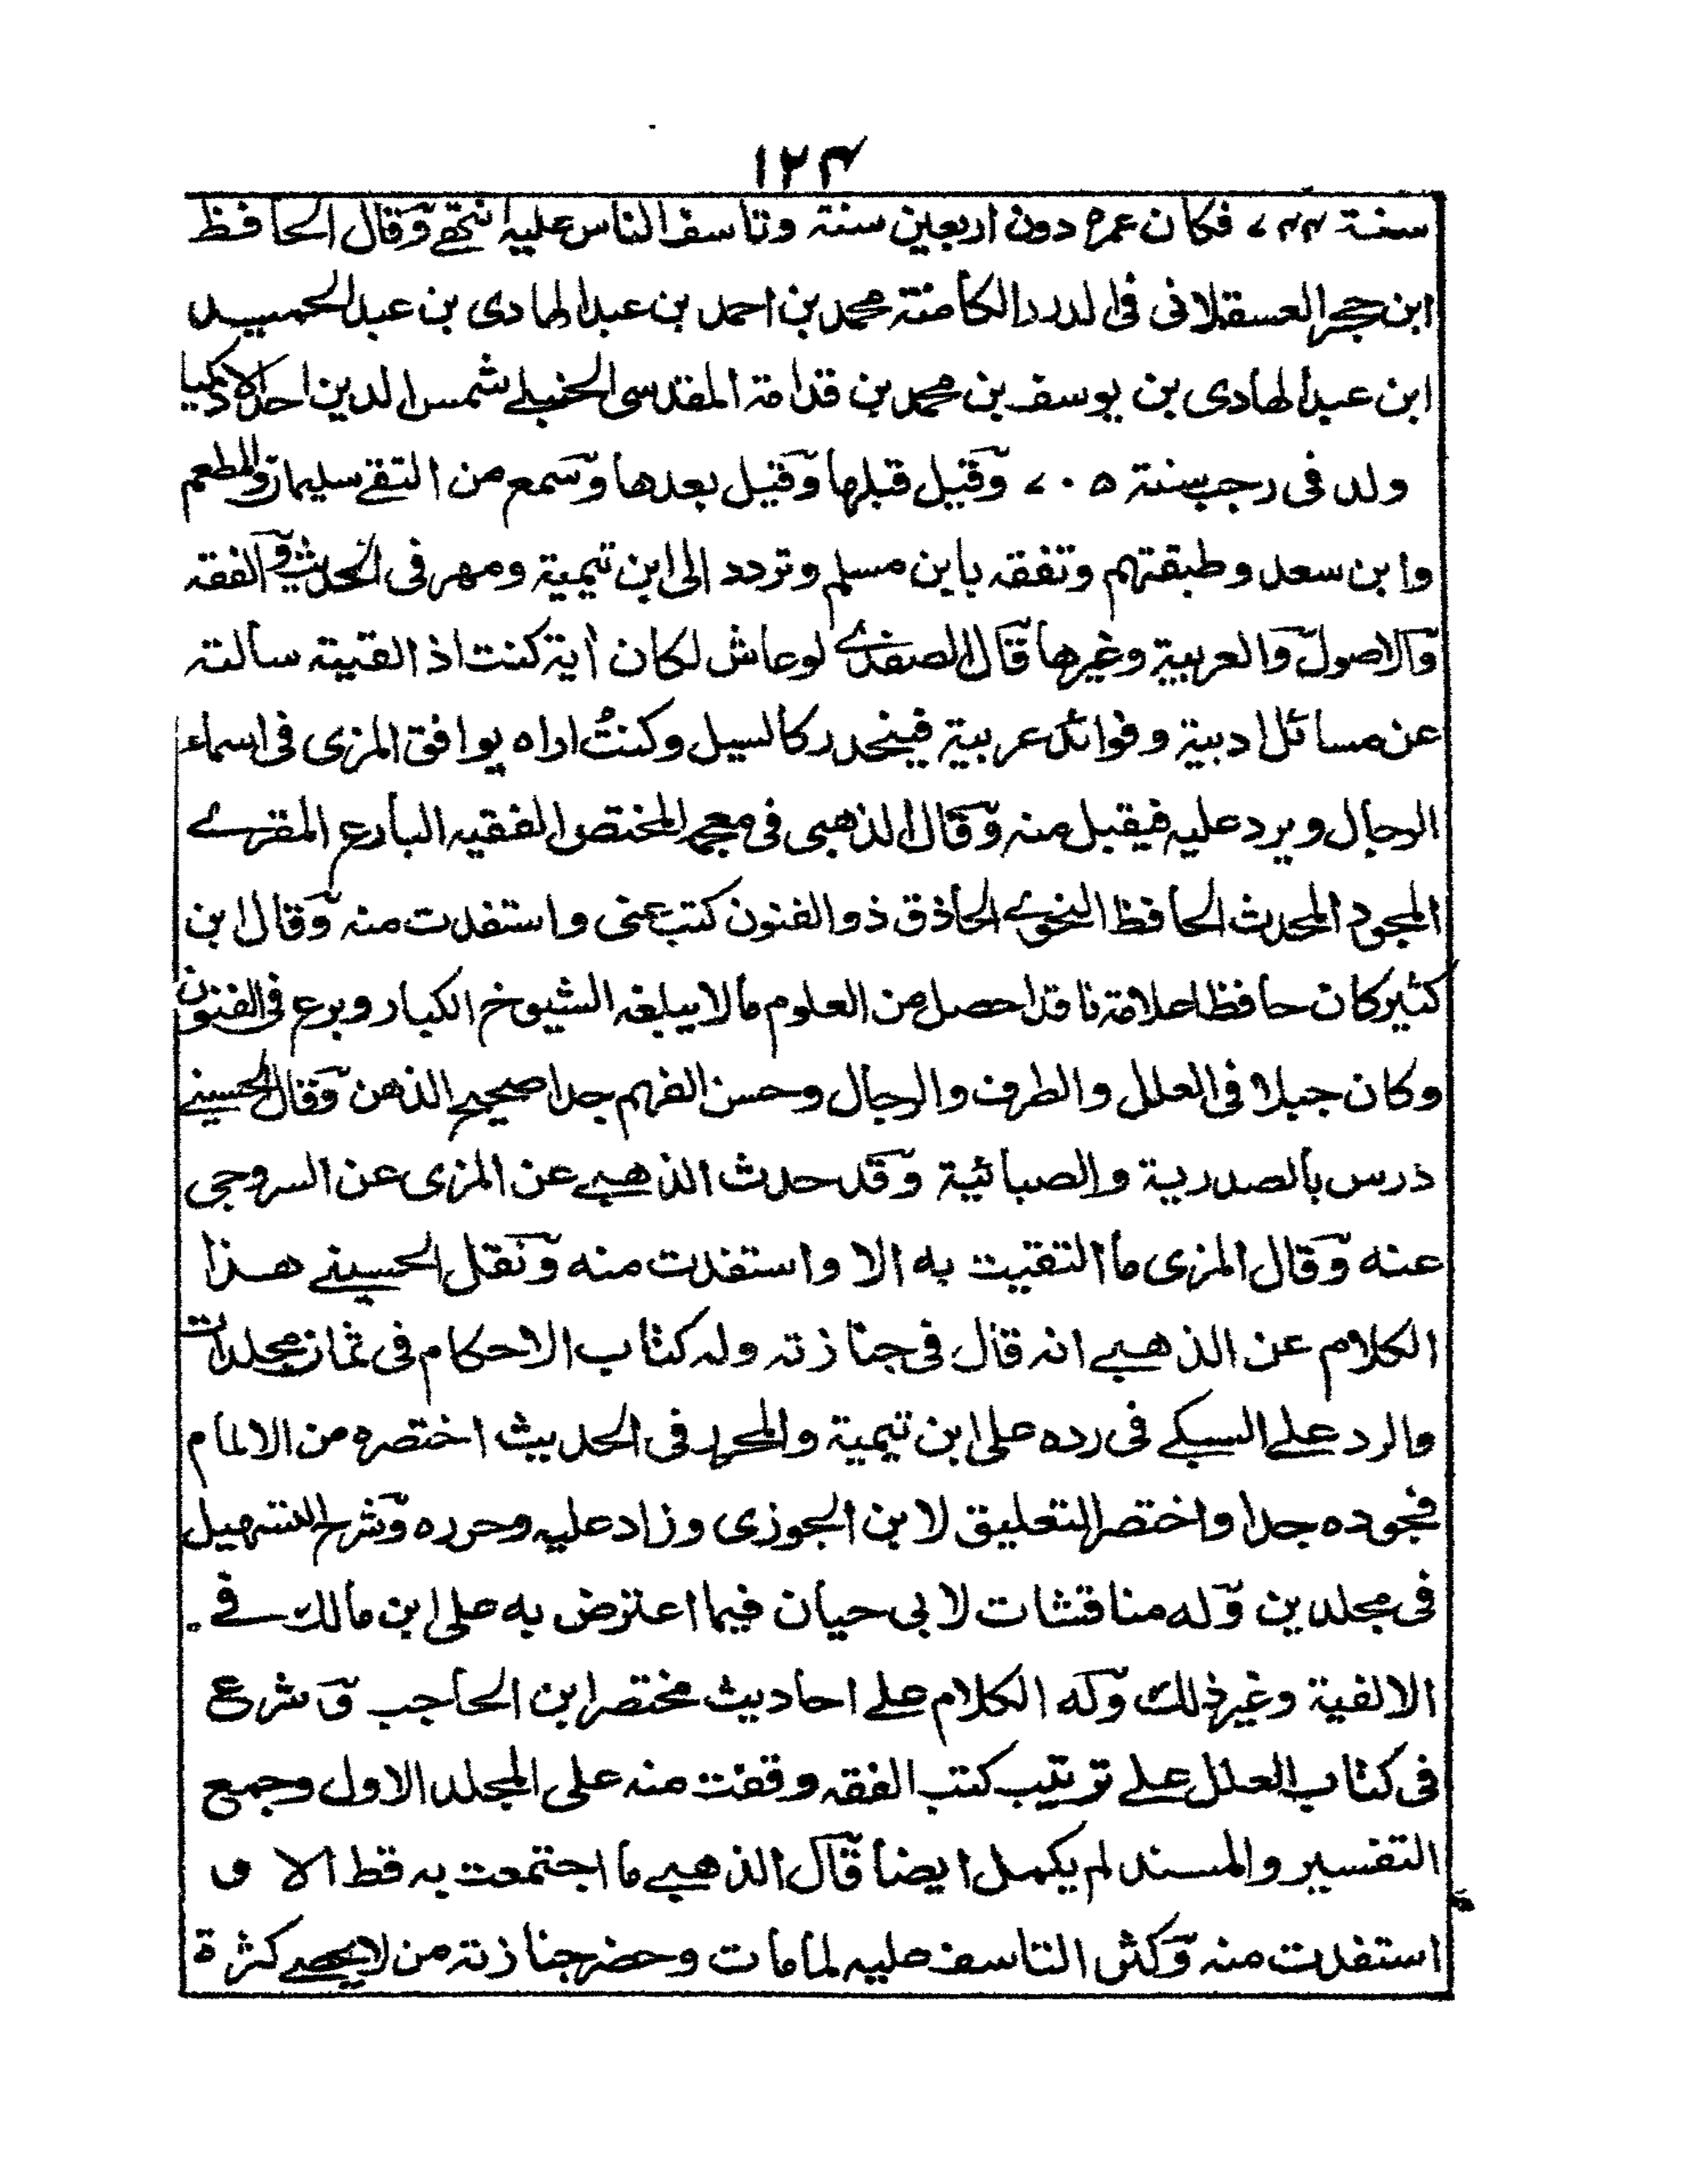 ۱۲۴
سنة ۷۴۴ فكان عمره دون اربعين سنة وتاسف الناس عليه انتهى وقال الحافظ
ابن حجر العسقلانى فى الدرر الكامنة محمد بن احمد بن عبد الهادى بن عبد الحميد
ابن عبد الهادى بن يوسف بن محمد بن قدامة المقدسى الحنبلے شمس الدين احد الاذكيا
ولد فى رجب سنة ۷۰۵ وقيل قبلها وقيل بعدها وسمع من التقے سليمان والمطعم
وابن سعد وطبقتهم وتفقه بابن مسلم وتردد الى ابن تيمية ومهر فى الحديث والفقه
والاصول والعربية وغيرها قال الصفدے لو عاش لكان اٰية كنت اذ القيته سألته
عن مسائل ادبية وفوائد عربية فينحدر كالسيل وكنتُ اراه يوافق المزى فى اسماء
الرجال ويرد عليه فيقبل منه وقال الذهبى فى معجمه المختص الفقيه البارع المقرے
المجود المحدث الحافظ النحوے الحاذق ذو الفنون كتب عنى واستفدت منه وقال ابن
كثير كان حافظا علامة ناقدا حصل من العلوم مالا يبلغه الشيوخ الكبار وبرع فى الفنون
وكان جبلا فى العلل والطرف والرجال وحسن الفهم جدا صحيح الذهن وقال الحسينے
درس بالصدرية والصبائية وقد حدث الذهبے عن المزى عن السروجى
عنه وقال المزى ما التقيت به الا واستفدت منه ونقل الحسينے هذا
الكلام عن الذهبے انه قال فى جنازته وله كتاب الاحكام فى ثمان مجلدات
والرد علے السبكے فى رده على ابن تيمية والمحرر فى الحديث اختصره من الالمام
فجوده جدا واختصر التعليق لابن الجوزى وزاد عليه وحرره وشرح التسهيل
فى مجلدين وله مناقشات لابى حيان فيما اعترض به على ابن مالك فے
الالفية وغير ذلك وله الكلام علے احاديث مختصر ابن الحاجب و شرع
فى كتاب العلل علے ترتيب كتب الفقه وقفت منه على المجلد الاول وجمع
التفسير والمسند لم يكمل ايضا قال الذهبے ما اجتمعت به قط الا و
استفدت منه وكثر التاسف عليه لما مات وحضر جنازته من لا يحصے كثرة